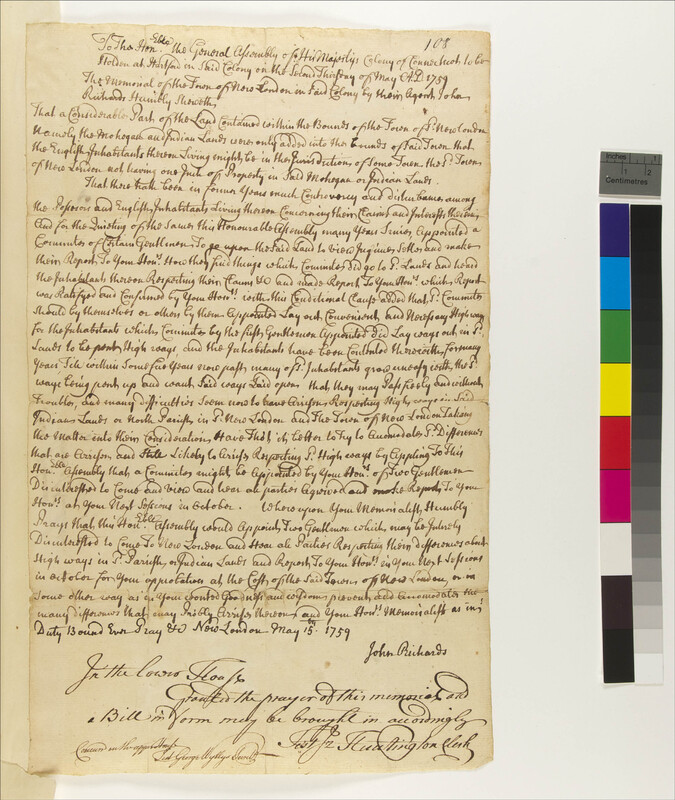 108
To The Hon.ble the General Assembly of His Majestys Colony of Connecticut to be
holden at Hartford in Said Colony on the Second Thirsday of May A.D. 1759
The Memorial of the Town of New London in Said Colony by their Agent John
Richards Humbly Sheweth
That a Considerable Part of the Land Contained within the Bounds of the Town of Sd. New London
Namely the Mohegan and Indian Lands were only added into the bounds of Said Town that
the English Inhabitants thereon Living might be in the Jurisdictions of Some Town the Sd. Town
of New London not having one Inch of Property in Said Mohegan or Indian Lands.
That there hath been in former Years much Controversy and disturbances among
the Possessors and English Inhabitants Living thereon Concerning their Claims and Interests therein
And for the Quieting of the Same this Honourable Assembly many Years Sinies Appointed a
Commitee of Certain Gentlemen To go upon the Said Land to View and make
their Report To Your Honrs. How they find things which Commitee did go to Sd. Lands and heard
the Inhabitants thereon Respecting their Claims &c and made Report To Your Honrs. which Report
was Ratifyed and Confirmed by Your Honrs. with this Conditional Clause added that Sd. Commitee
Should by themselves or others by them Appointed Lay out Convenient and Necessary High ways
for the Inhabitants which Commitee by the Gentlemen Appointed did Lay ways out in Sd.
Lands to be pent High ways, and the Inhabitants have been Contented therewith for many
Years Till within Some five Years now past many of Sd. Inhabitants grow uneasy with the Sd.
ways being pent up and want Said ways Laid open that they may Pass freely and without
Trouble, and many difficulties Seem now to have Arisen Respecting High ways in Said
Indians Lands or North Parish in Sd. New London and The Town of New London Taking
the Matter into their Consideration Have Tho't it better to Try to Accomodate Sd. Differences
that are Arrisen and Still Likely to Arrise Respecting Sd. High ways by Appling To This
Honble. Assembly that a Commitee might be Appointed by Your Honrs. of Two Gentlemen
Disinterested to Come and View and hear all parties Agrived and make Report To Your
Honrs. at Your Next Sessions in October. Where upon Your Memorialists Humbly
Prays that this Honble. Assembly would Appoint Two Gentlemen which may be Intirely
Disinterested to Come To New London and Hear all Parties Respecting their differences about
High ways in Sd. Parish or Indian Lands and Report To Your Honrs. in Your Next Sessions
in october for Your approbation at the Cost of the Said Town of New London, or in
Some other way as in Your wonted Goodness and wisdom prevent and accomodate the
many differences that may Arrise thereon and Your Honrs. Memorialists as in
Duty Bound Ever Pray &c New London May 15th. 1759
John Richards
In the lower House
Granted the prayer of this memorial and
a Bill in form may be brought in accordingly
Test Huntington Clerk
Concurd in the upper House
Test George Wyllys Secrety
Inches 1
Centimetres 1 2